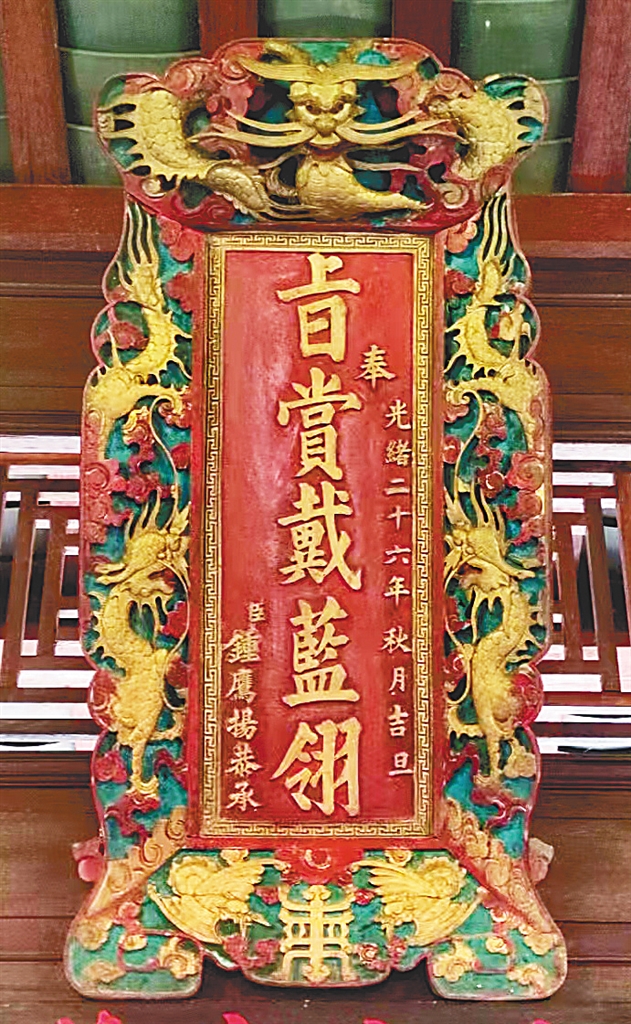 奉
光緒二十六年秋月吉旦
上旨賞戴藍翎
臣
鍾鷹揚恭承